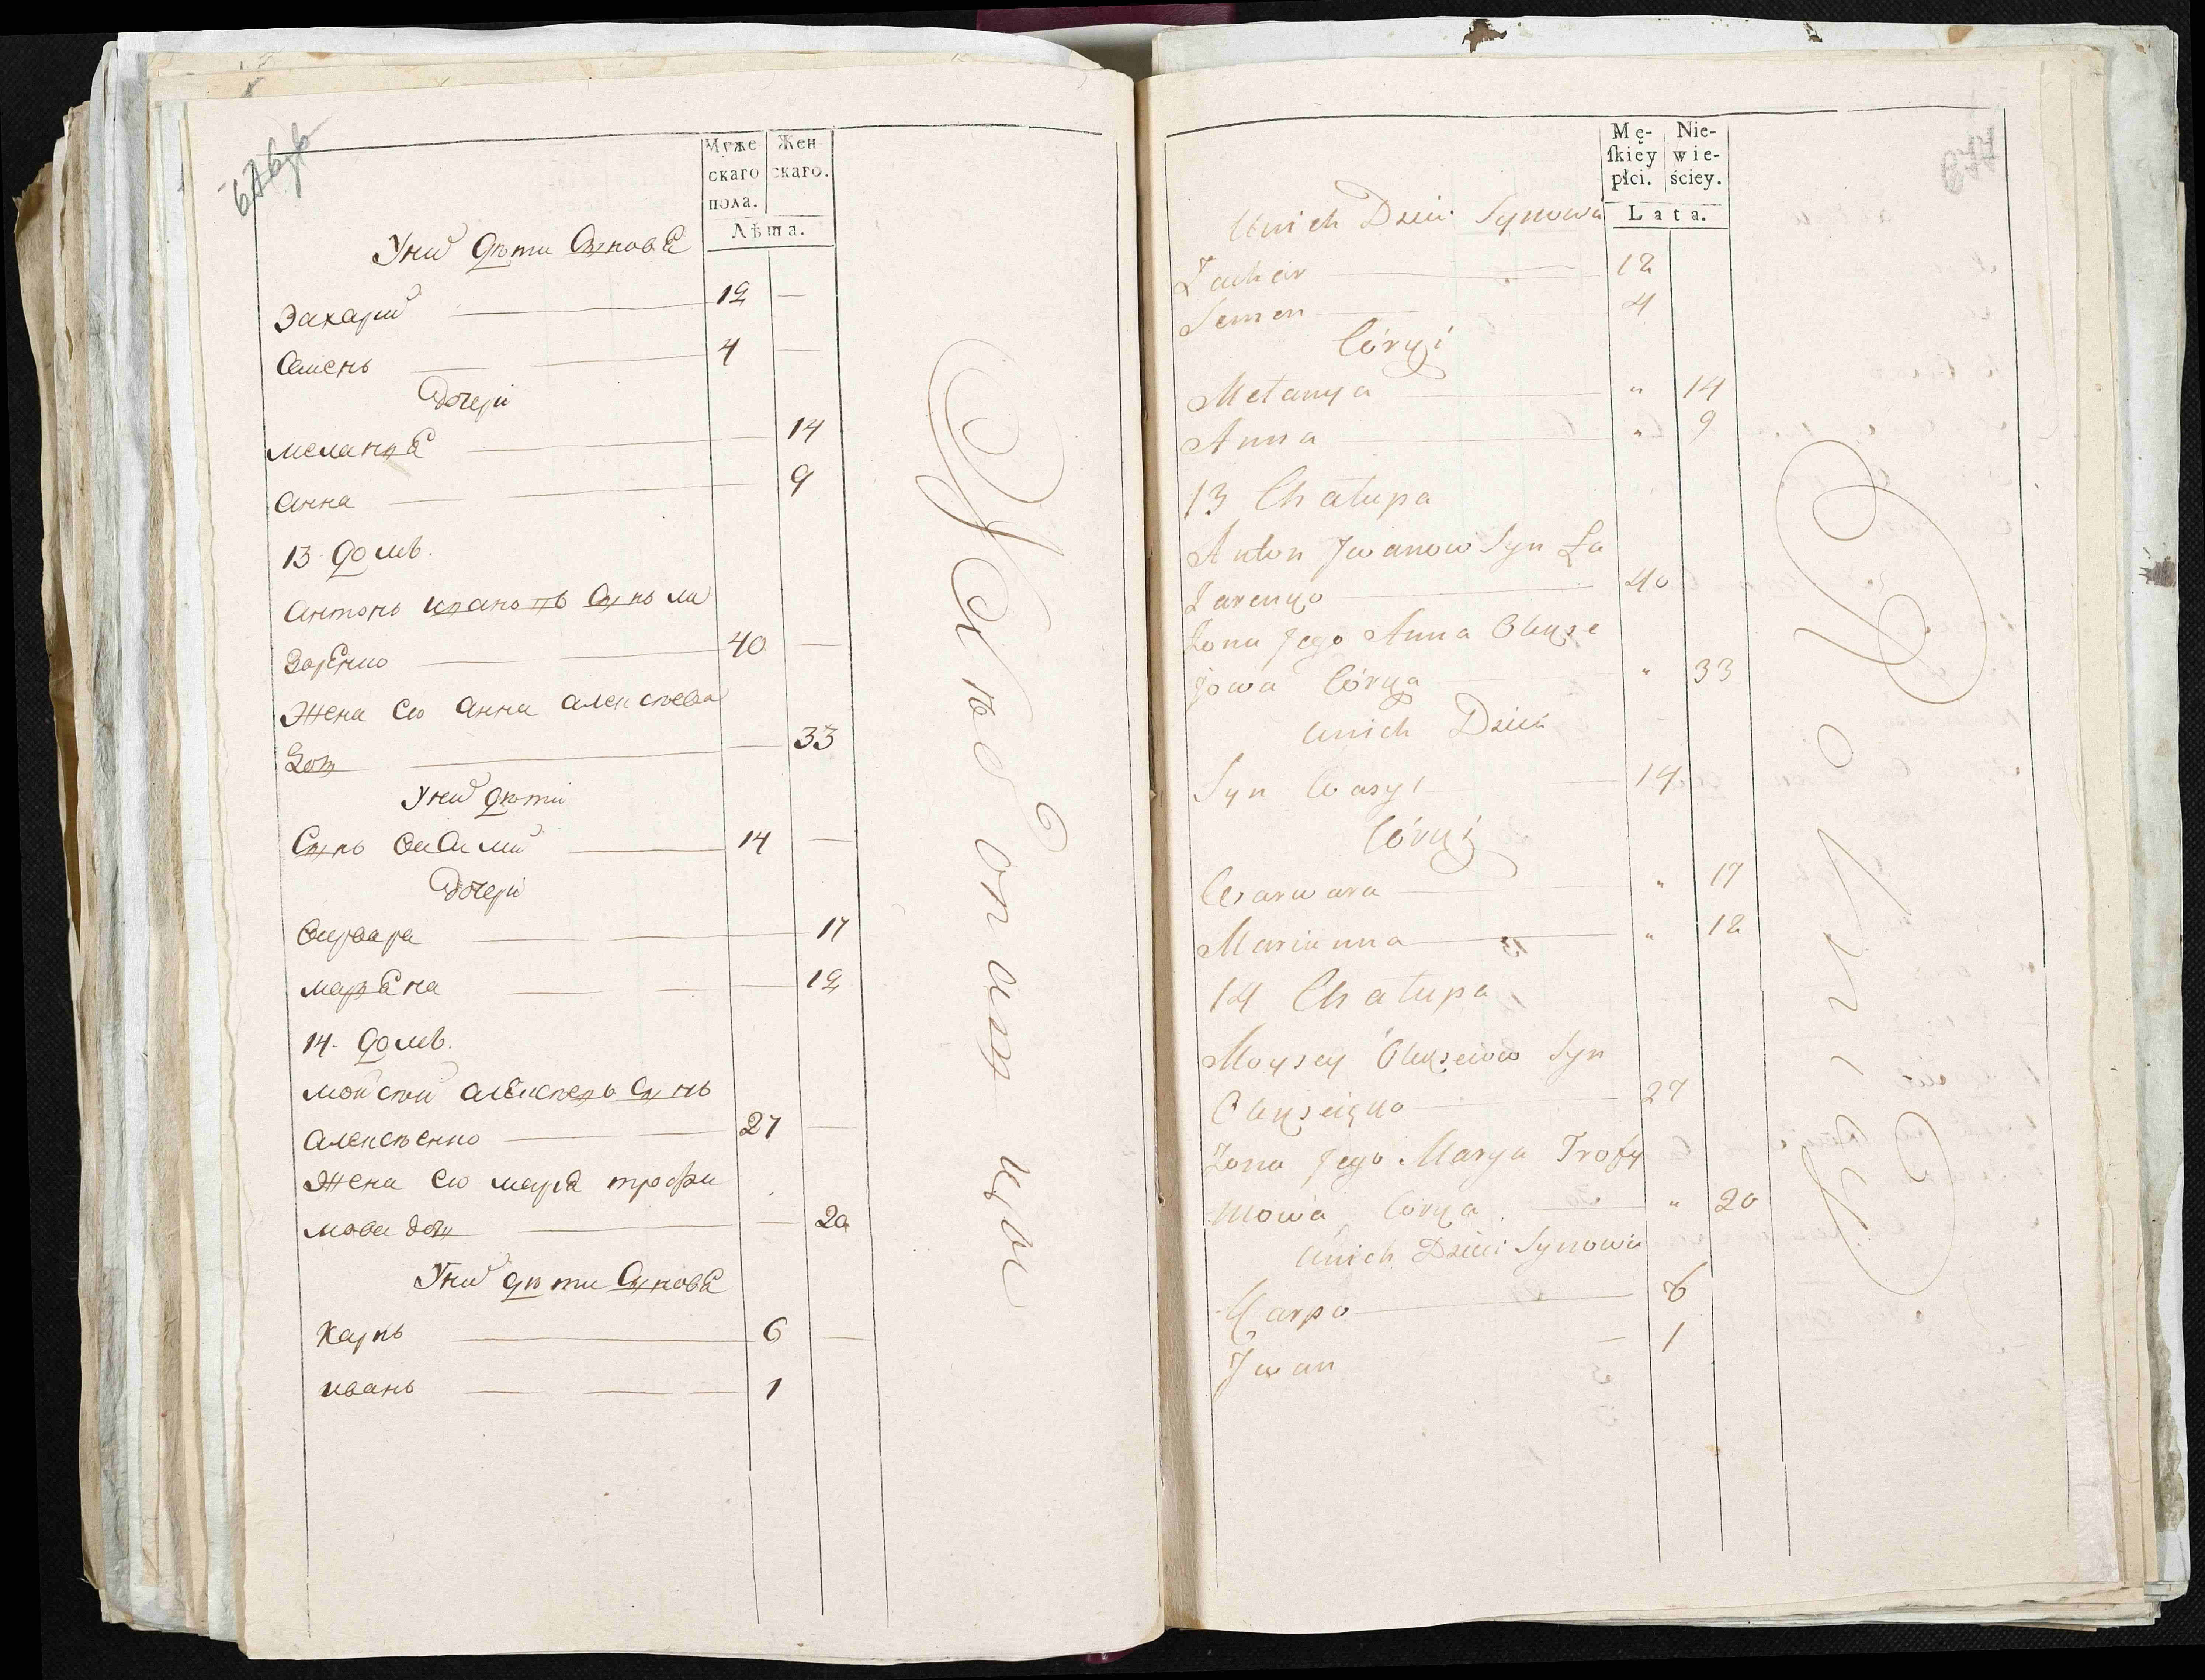 Муже
скаго
пола.
Жен
скаго.
Лѣта.
Уних дѣти Сынове
Захарий 12 —
Семенъ 4 —
Дочери
мелания 14
Анна 9
13 домъ.
Антонъ ивановъ Сынъ ла
заренко 40 —
Жена его Анна алексѣева
дочь — 33
Уних дѣти
Сынъ василий 14 —
Дочери
варвара 17
марияна 12
14. домъ.
мойсей алексеевъ Сынъ
алексѣенко 27 —
Жена его мария трофи
мова дочь — 20
Уних дѣти Сынове
Карпъ 6 —
иванъ 1
Mę-
ſkiey
płci.
Nie-
wie-
ściey.
Lata.
Unich Dzieci Synowa
Zachar 12
Semen 4
Córki
Mełanya " 14
Anna " 9
13 Chałupa
Anton Jwanow Syn Ła
Zarenko 40
Zona Jego Anna Olexe
jowa Córka " 33
Unich Dzieci
Syn Wasyl 14
Córki
Warwara " 17
Marianna " 12
14 Chałupa
Moysey Olexeiow Syn
Olexeięko 27
Zona Jego Marya Trofy
mowa Córka " 20
Unich Dzieci Synowie
Karpo 6
Jwan 1